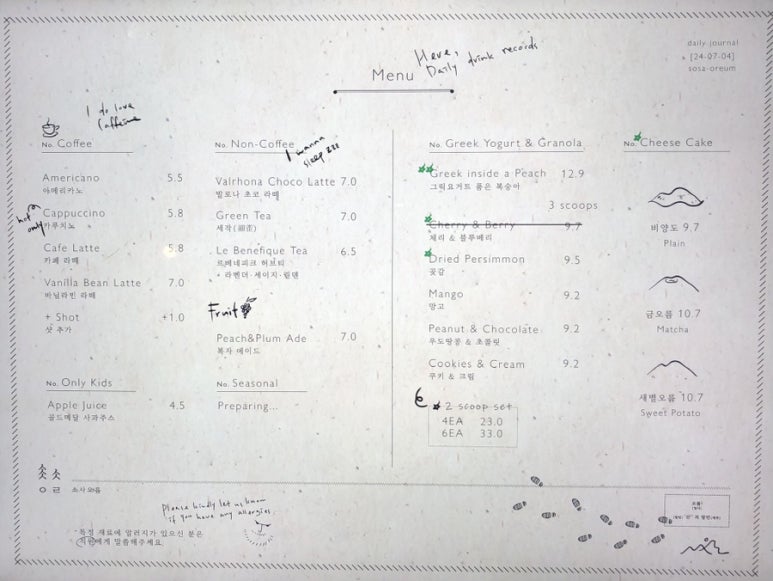 Menu
Here,
Daily drink records
daily journal
[24-07-04]
sosa-oreum
I do love
Caffeine
No. Coffee
Americano 5.5
아메리카노
hot only
Cappuccino 5.8
카푸치노
Cafe Latte 5.8
카페 라떼
Vanilla Bean Latte 7.0
바닐라빈 라떼
+ Shot +1.0
샷 추가
No. Only Kids
Apple Juice 4.5
골드메달 사과주스
No. Non-Coffee
I wanna
sleep zzz
Valrhona Choco Latte 7.0
발로나 초코 라떼
Green Tea 7.0
세작(細雀)
Le Benefique Tea 6.5
르베네피크 허브티
Fruit
Peach&Plum Ade 7.0
복자 에이드
No. Seasonal
Preparing...
No. Greek Yogurt & Granola
Greek inside a Peach 12.9
그릭요거트 품은 복숭아
3 scoops
Cherry & Berry 9.7
체리 & 블루베리
Dried Persimmon 9.5
곶감
Mango 9.2
망고
Peanut & Chocolate 9.2
우도땅콩 & 초콜릿
Cookies & Cream 9.2
쿠키 & 크림
2 scoop set
4EA 23.0
6EA 33.0
No. Cheese Cake
비양도 9.7
Plain
금오름 10.7
Matcha
새별오름 10.7
Sweet Potato
소사오름
Please kindly let us know
if you have any allergies.
특정 재료에 알러지가 있으신 분은
직원에게 말씀해주세요.